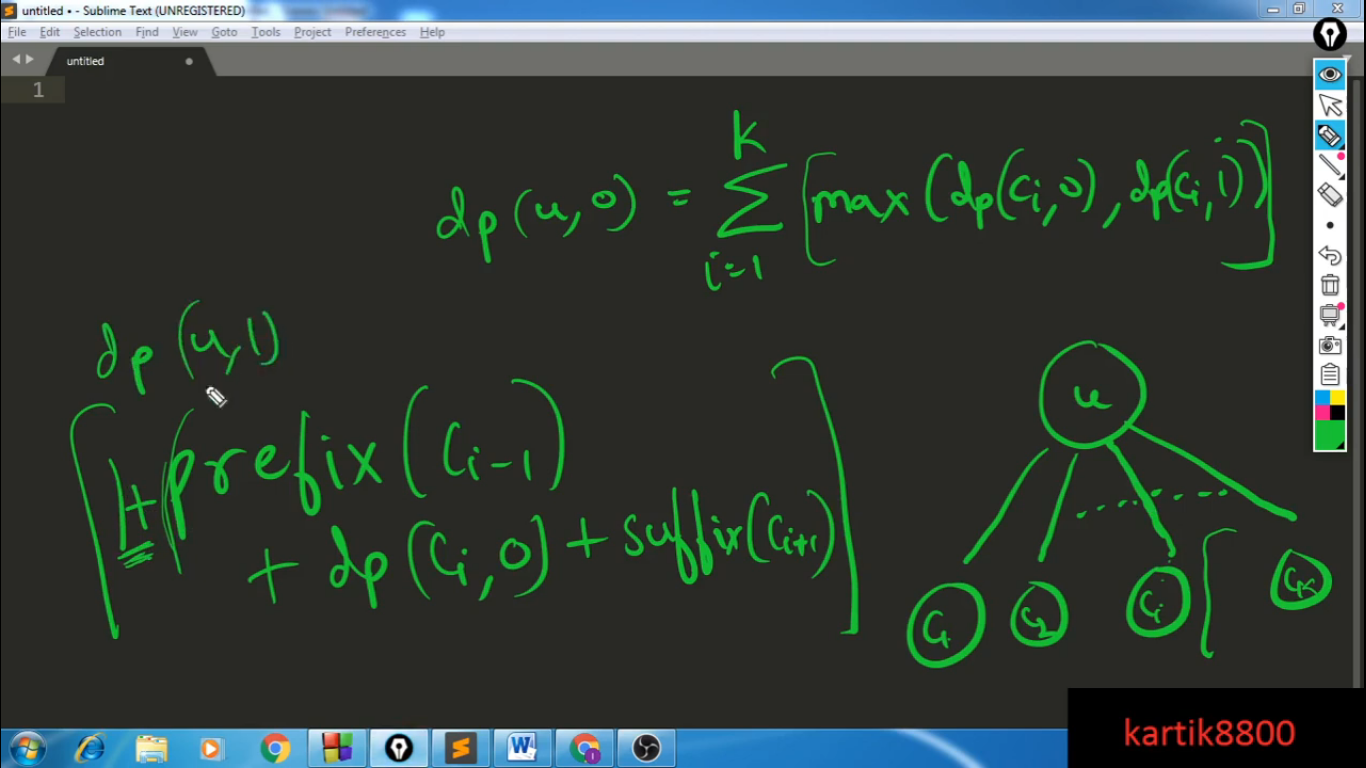 untitled • - Sublime Text (UNREGISTERED)
File Edit Selection Find View Goto Tools Project Preferences Help
untitled
1
K
dp(u,0) = Σ [max(dp(Ci,0),dp(Ci,1))]
i=1
dp(u,1)
[1+(prefix(Ci-1)
+ dp(Ci,0)+suffix(Ci+1)]
u
C1 C2 Ci CK
kartik8800